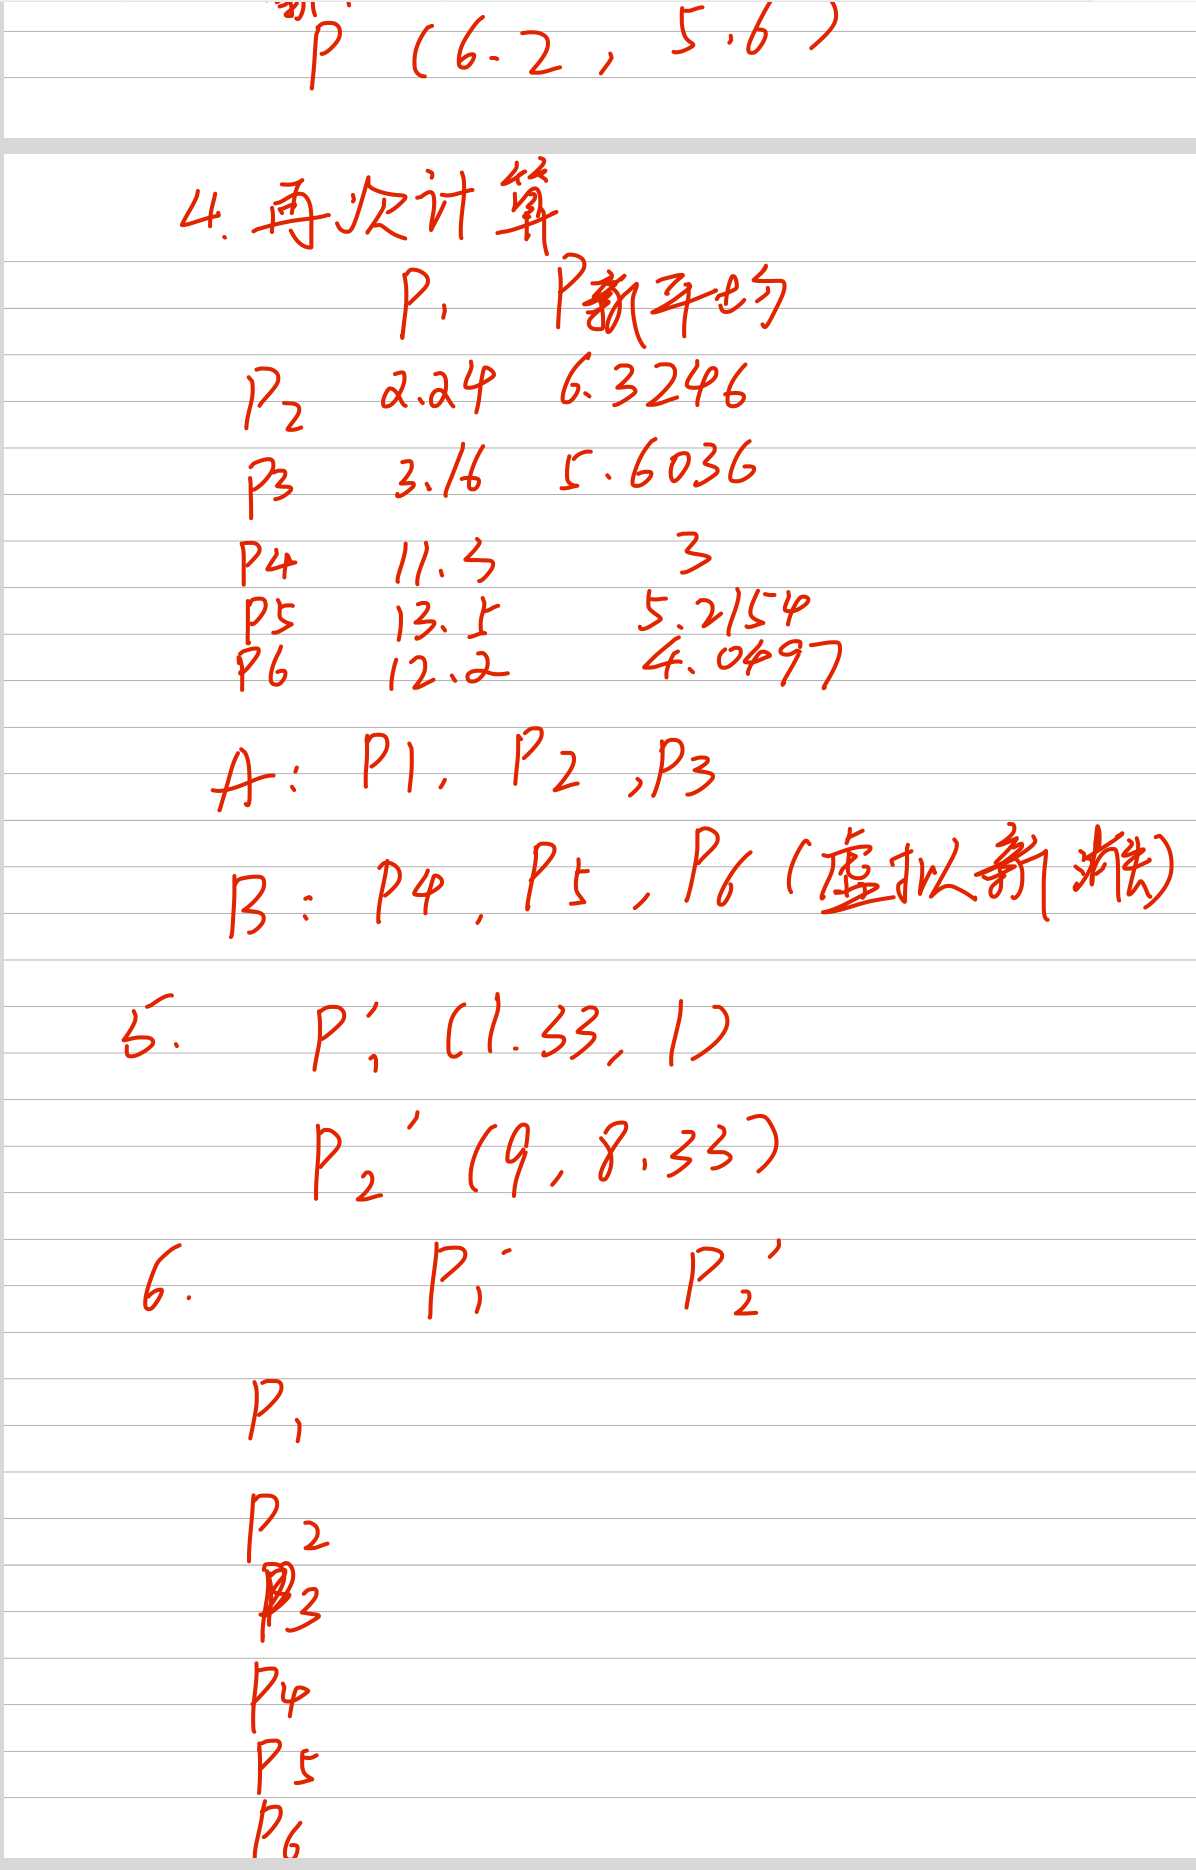 新
P (6.2, 5.6)
4. 再次计算
P1 P新平均
P2 2.24 6.3246
P3 3.16 5.6036
P4 11.3 3
P5 13.5 5.2154
P6 12.2 4.0497
A: P1, P2, P3
B: P4, P5, P6 (虚拟新
5. P1' (1.33, 1)
P2' (9, 8.33)
6. P1' P2'
P1
P2
P3
P4
P5
P6